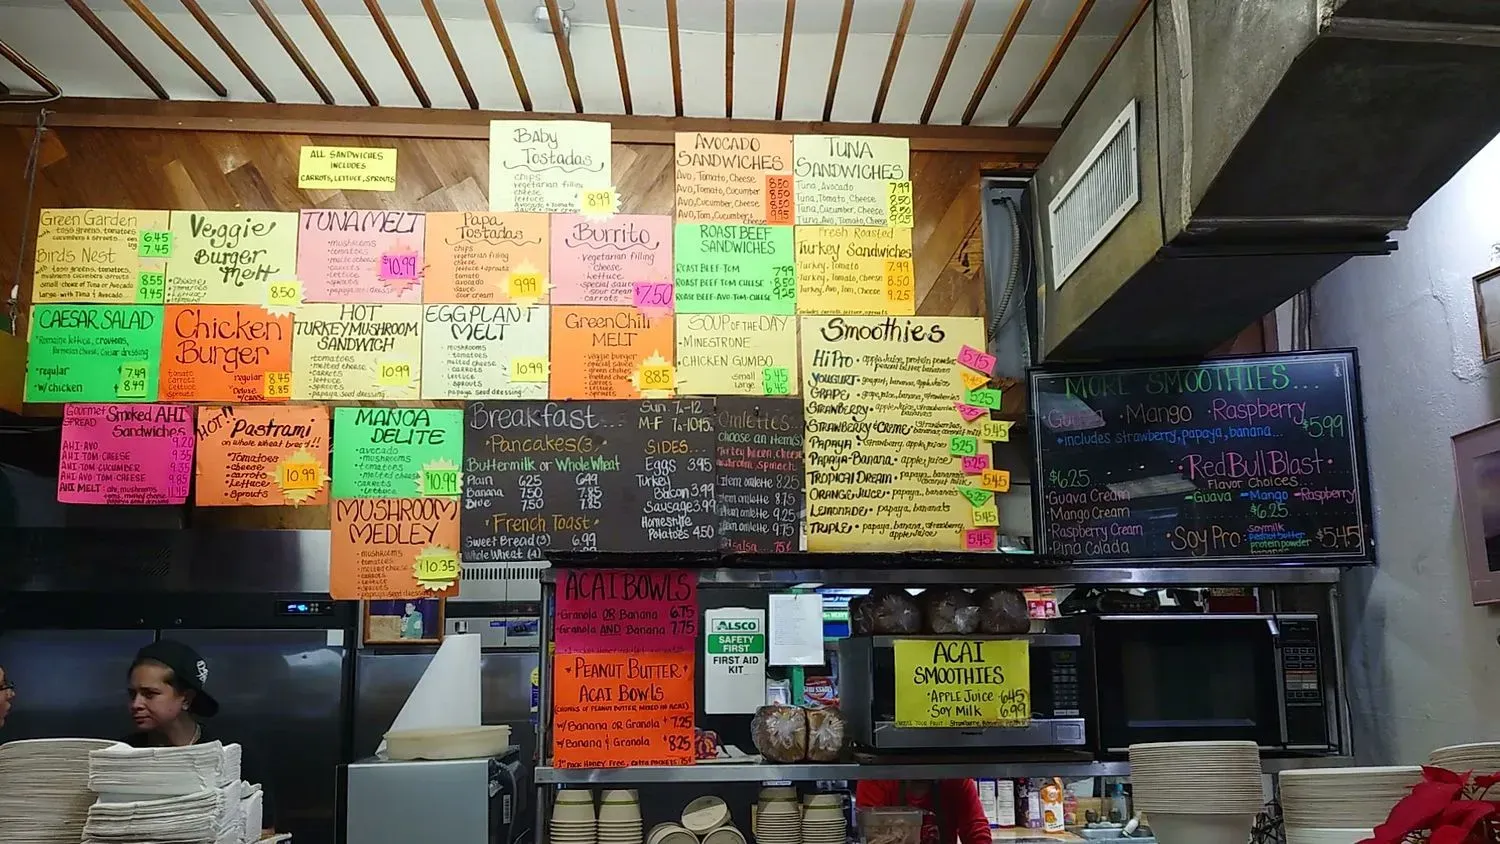 ALL SANDWICHES
INCLUDES
CARROTS, LETTUCE, SPROUTS
Baby
Tostadas
chips
vegetarian filling
cheese
lettuce
8.99
AVOCADO
SANDWICHES
Avo, Tomato, Cheese 8.50
Avo, Tomato, Cucumber 8.50
Avo, Cucumber, Cheese 8.50
Avo, Tom, Cucumber, Cheese 9.25
TUNA
SANDWICHES
Tuna, Avocado 7.99
Tuna, Tomato, Cheese 8.50
Tuna, Cucumber, Cheese 8.50
Tuna, Avo, Tomato, Cheese 9.25
Green Garden
toss greens, tomatoes
cucumbers & sprouts
6.45
7.45
Birds Nest
with toss greens, tomatoes
mushrooms cucumbers sprouts
small - choice of Tuna or Avocado 8.55
large - with Tuna & Avocado 9.45
Veggie
Burger
Melt
8.50
TUNA MELT
• mushrooms
• tomatoes
• melted cheese
• carrots
• lettuce
• sprouts
• papaya seed dressing
$10.99
Papa
Tostadas
chips
vegetarian filling
cheese
lettuce & sprouts
tomato
avocado
sauce
sour cream
9.99
Burrito
• vegetarian filling
• cheese
• lettuce
• special sauce
• sour cream
• carrots
$7.50
ROAST BEEF
SANDWICHES
ROAST BEEF-TOM 7.99
ROAST BEEF TOM CHEESE 8.50
ROAST BEEF-AVO-TOM-CHEESE 9.25
Fresh Roasted
Turkey Sandwiches
Turkey, Tomato 7.99
Turkey, Tom, Cheese 8.50
Turkey, Avo, Tom, Cheese 9.25
includes carrots, lettuce, sprouts
CAESAR SALAD
Romaine lettuce, croutons,
Parmesan cheese, Caesar dressing
• regular $7.49
• w/chicken $8.49
Chicken
Burger
tomato
carrots
lettuce
regular 8.45
HOT
TURKEY MUSHROOM
SANDWICH
• tomatoes
• melted cheese
• carrots
• lettuce
• sprouts
10.99
EGGPLANT
MELT
• mushrooms
• tomatoes
• melted cheese
• carrots
• lettuce
• sprouts
10.99
Green Chili
MELT
• veggie burger
• special sauce
• green chilies
• melted cheese
• carrots
8.85
SOUP OF THE DAY
• MINESTRONE
• CHICKEN GUMBO
small 5.45
large 6.45
Smoothies
Hi Pro • apple juice, protein powder 5.75
peanut butter, bananas
YOGURT
GRAPE
STRAWBERRY
STRAWBERRY & CREME 5.45
PAPAYA • apple juice 5.25
PAPAYA-BANANA • apple juice 5.25
TROPICAL DREAM 5.45
ORANGE JUICE • papaya, bananas 5.25
LEMONADE • papaya, bananas 5.45
TRIPLE • papaya, banana, strawberry, 5.45
apple juice
MORE SMOOTHIES...
• Guava • Mango • Raspberry $5.99
• includes strawberry, papaya, banana...
$6.25
• Guava Cream
• Mango Cream
• Raspberry Cream
• Pina Colada
• Red Bull Blast •
Flavor Choices...
- Guava - Mango - Raspberry
$6.25
• Soy Pro: soymilk
peanut butter
protein powder
bananas
$5.45
Gourmet
SPREAD
Smoked AHI
Sandwiches
AHI-AVO 9.20
AHI-TOM-CHEESE 9.35
AHI-TOM-CUCUMBER 9.35
AHI-AVO-TOM-CHEESE 9.85
AHI MELT 11.45
"HOT" Pastrami
on whole wheat bread!!
• Tomatoes
• cheese
• carrots
• Lettuce
• Sprouts
10.99
MANOA
DELITE
• avocado
• mushrooms
• tomatoes
• melted cheese
• carrots
• lettuce
$10.99
MUSHROOM
MEDLEY
• mushrooms
• tomatoes
• melted cheese
• carrots
• lettuce
• sprouts
• papaya seed dressing
$10.35
Breakfast...
Sun. 7a-12
M-F 7a-10:15a
• Pancakes (3) •
Buttermilk or Whole Wheat
Plain 6.25 6.99
Banana 7.50 7.85
Blue 7.50 7.85
• French Toast •
Sweet Bread (3) 6.99
Whole Wheat (4)
SIDES...
Eggs 3.95
Turkey
Bacon 3.99
Sausage 3.99
Homestyle
Potatoes 4.50
Omlettes...
choose an item(s)
turkey, bacon, cheese
mushroom, spinach
1 item omlette 8.25
2 item omlette 8.75
3 item omlette 9.25
item omlette 9.75
salsa... 75¢
ACAI BOWLS
• Granola OR Banana 6.75
• Granola AND Banana 7.75
• PEANUT BUTTER •
ACAI BOWLS
(CHUNKS OF PEANUT BUTTER, MIXED W/ ACAI)
w/ Banana OR Granola $7.25
w/ Banana & Granola $8.25
1 pack Honey Free, extra packets 75¢
ALSCO
SAFETY
FIRST
FIRST AID
KIT
ACAI
SMOOTHIES
• APPLE JUICE 6.45
• SOY MILK 6.99